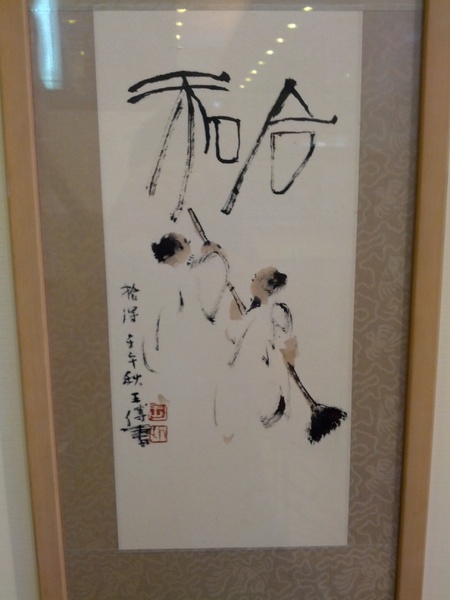 和合
拾得 壬午秋 王